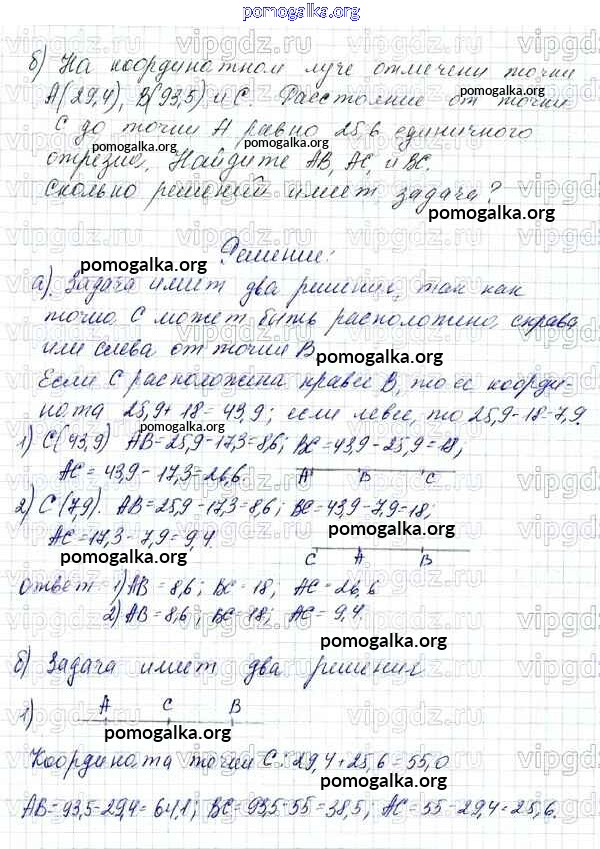 pomogalka.org
б) На координатном луче отмечены точки
А(29,4), В(93,5) и С. Расстояние от точки
С до точки А равно 25,6 единичного
отрезка. Найдите АВ, АС, и ВС.
Сколько решений имеет задача?
Решение:
а). Задача имеет два решения, так как
точка С может быть расположена, справа
или слева от точки В
Если С расположена правее В, то ее коорди-
ната 25,9+18=43,9; если левее, то 25,9-18=7,9.
1) С(43,9) АВ=25,9-17,3=8,6; ВС=43,9-25,9=18,
АС=43,9-17,3=26,6.
А В С
2) С(7,9). АВ=25,9-17,3=8,6; ВС=43,9-7,9=18;
АС=17,3-7,9=9,4.
С А В
ответ 1) АВ=8,6; ВС=18; АС=26,6
2) АВ=8,6; ВС=18; АС=9,4.
б) Задача имеет два решения
А С В
1)
Координата точки С: 29,4+25,6=55,0
АВ=93,5-29,4=64,1; ВС=93,5-55=38,5; АС=55-29,4=25,6.